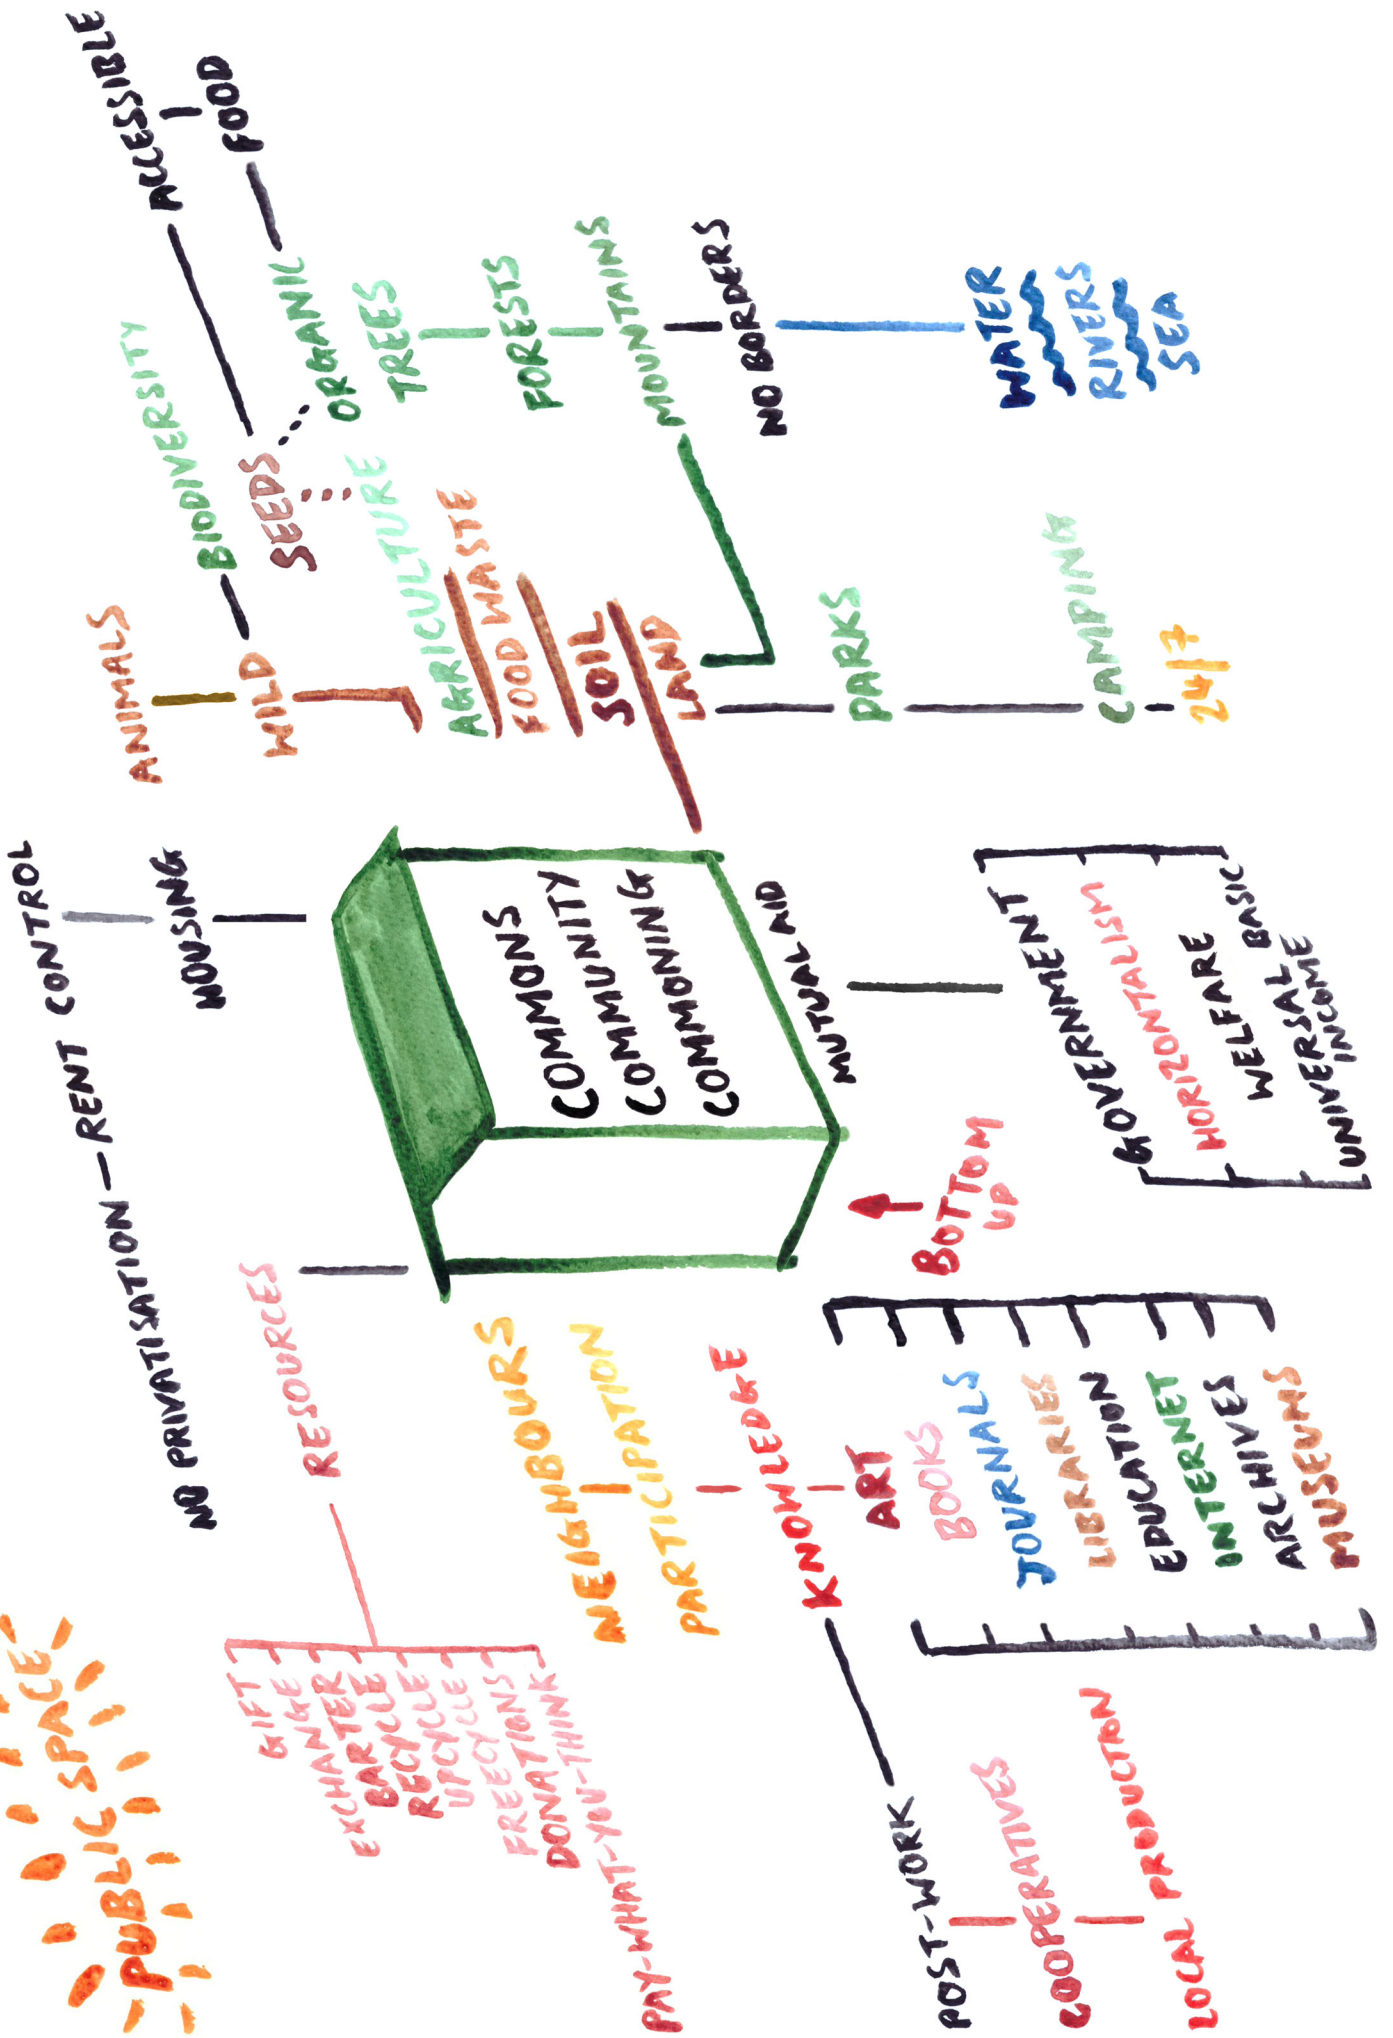 PUBLIC SPACE
NO PRIVATISATION — RENT CONTROL
HOUSING
RESOURCES
GIFT
EXCHANGE
BARTER
RECYCLE
UPCYCLE
FREECYCLE
DONATIONS
PAY-WHAT-YOU-THINK
NEIGHBOURS
PARTICIPATION
KNOWLEDGE
ART
BOOKS
JOURNALS
LIBRARIES
EDUCATION
INTERNET
ARCHIVES
MUSEUMS
POST-WORK
COOPERATIVES
LOCAL PRODUCTION
COMMONS
COMMUNITY
COMMONING
MUTUAL AID
BOTTOM
UP
GOVERNMENT
HORIZONTALISM
WELFARE
UNIVERSAL BASIC
INCOME
ANIMALS
WILD
BIODIVERSITY
SEEDS
ACCESSIBLE
FOOD
ORGANIC
AGRICULTURE
FOOD WASTE
SOIL
LAND
TREES
FORESTS
MOUNTAINS
NO BORDERS
WATER
RIVERS
SEA
PARKS
CAMPING
24/7